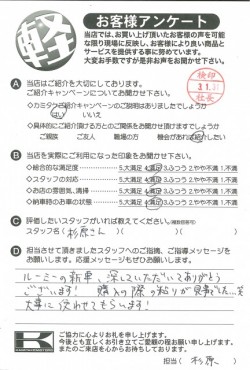 軽
お客様アンケート
当店では、お買い上げ頂いたお客様の声を可能な
限り現場に反映し、お客様により良い商品と
サービスを提供する事に努めています。
大変お手数ですが是非お声をお聞かせ下さい。
検印
社長
A 当店はご紹介を大切にしております。
ご紹介キャンペーンについてお聞かせ下さい。
はい いいえ
◇具体的にご紹介頂ける方との関係をお聞かせ頂けますでしょうか
ご親族 ご友人 職場の方 機会があればしたい
B 当店を実際にご利用になった印象をお聞かせ下さい。
◇総合的な満足度 5.大満足 4.満足 3.ふつう 2.やや不満 1.不満
◇スタッフの対応 5.大満足 4.満足 3.ふつう 2.やや不満 1.不満
◇お店の雰囲気、清掃 5.大満足 4.満足 3.ふつう 2.やや不満 1.不満
◇納車時のお車の状態 5.大満足 4.満足 3.ふつう 2.やや不満 1.不満
C 評価したいスタッフがいれば教えてください。(複数回答可)
スタッフ名(杉原さん)
D 担当させて頂きましたスタッフへのご指摘、ご応援メッセージを
お願いします。ご応援メッセージをお願いします。
ルーミーの新車、探していただいてありがとう
ございます! 購入の際の
大事に使わせてもらいます!
K
ご協力に心よりお礼を申し上げます。
今後とも宜しくお引き立てご愛顧の程お願い申し上げます。
またのご来店を心からお待ちしております。
担当(杉原)